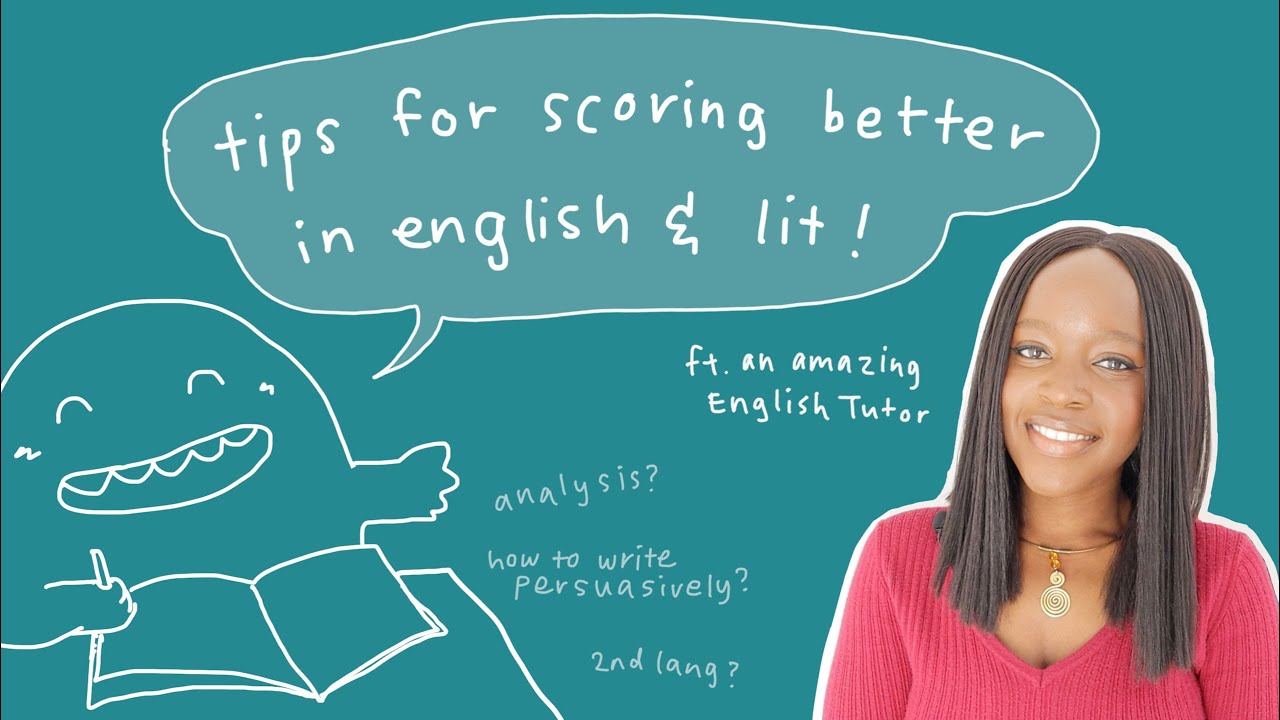 tips for scoring better
in english & lit!
ft. an amazing
English Tutor
analysis?
how to write
persuasively?
2nd lang?